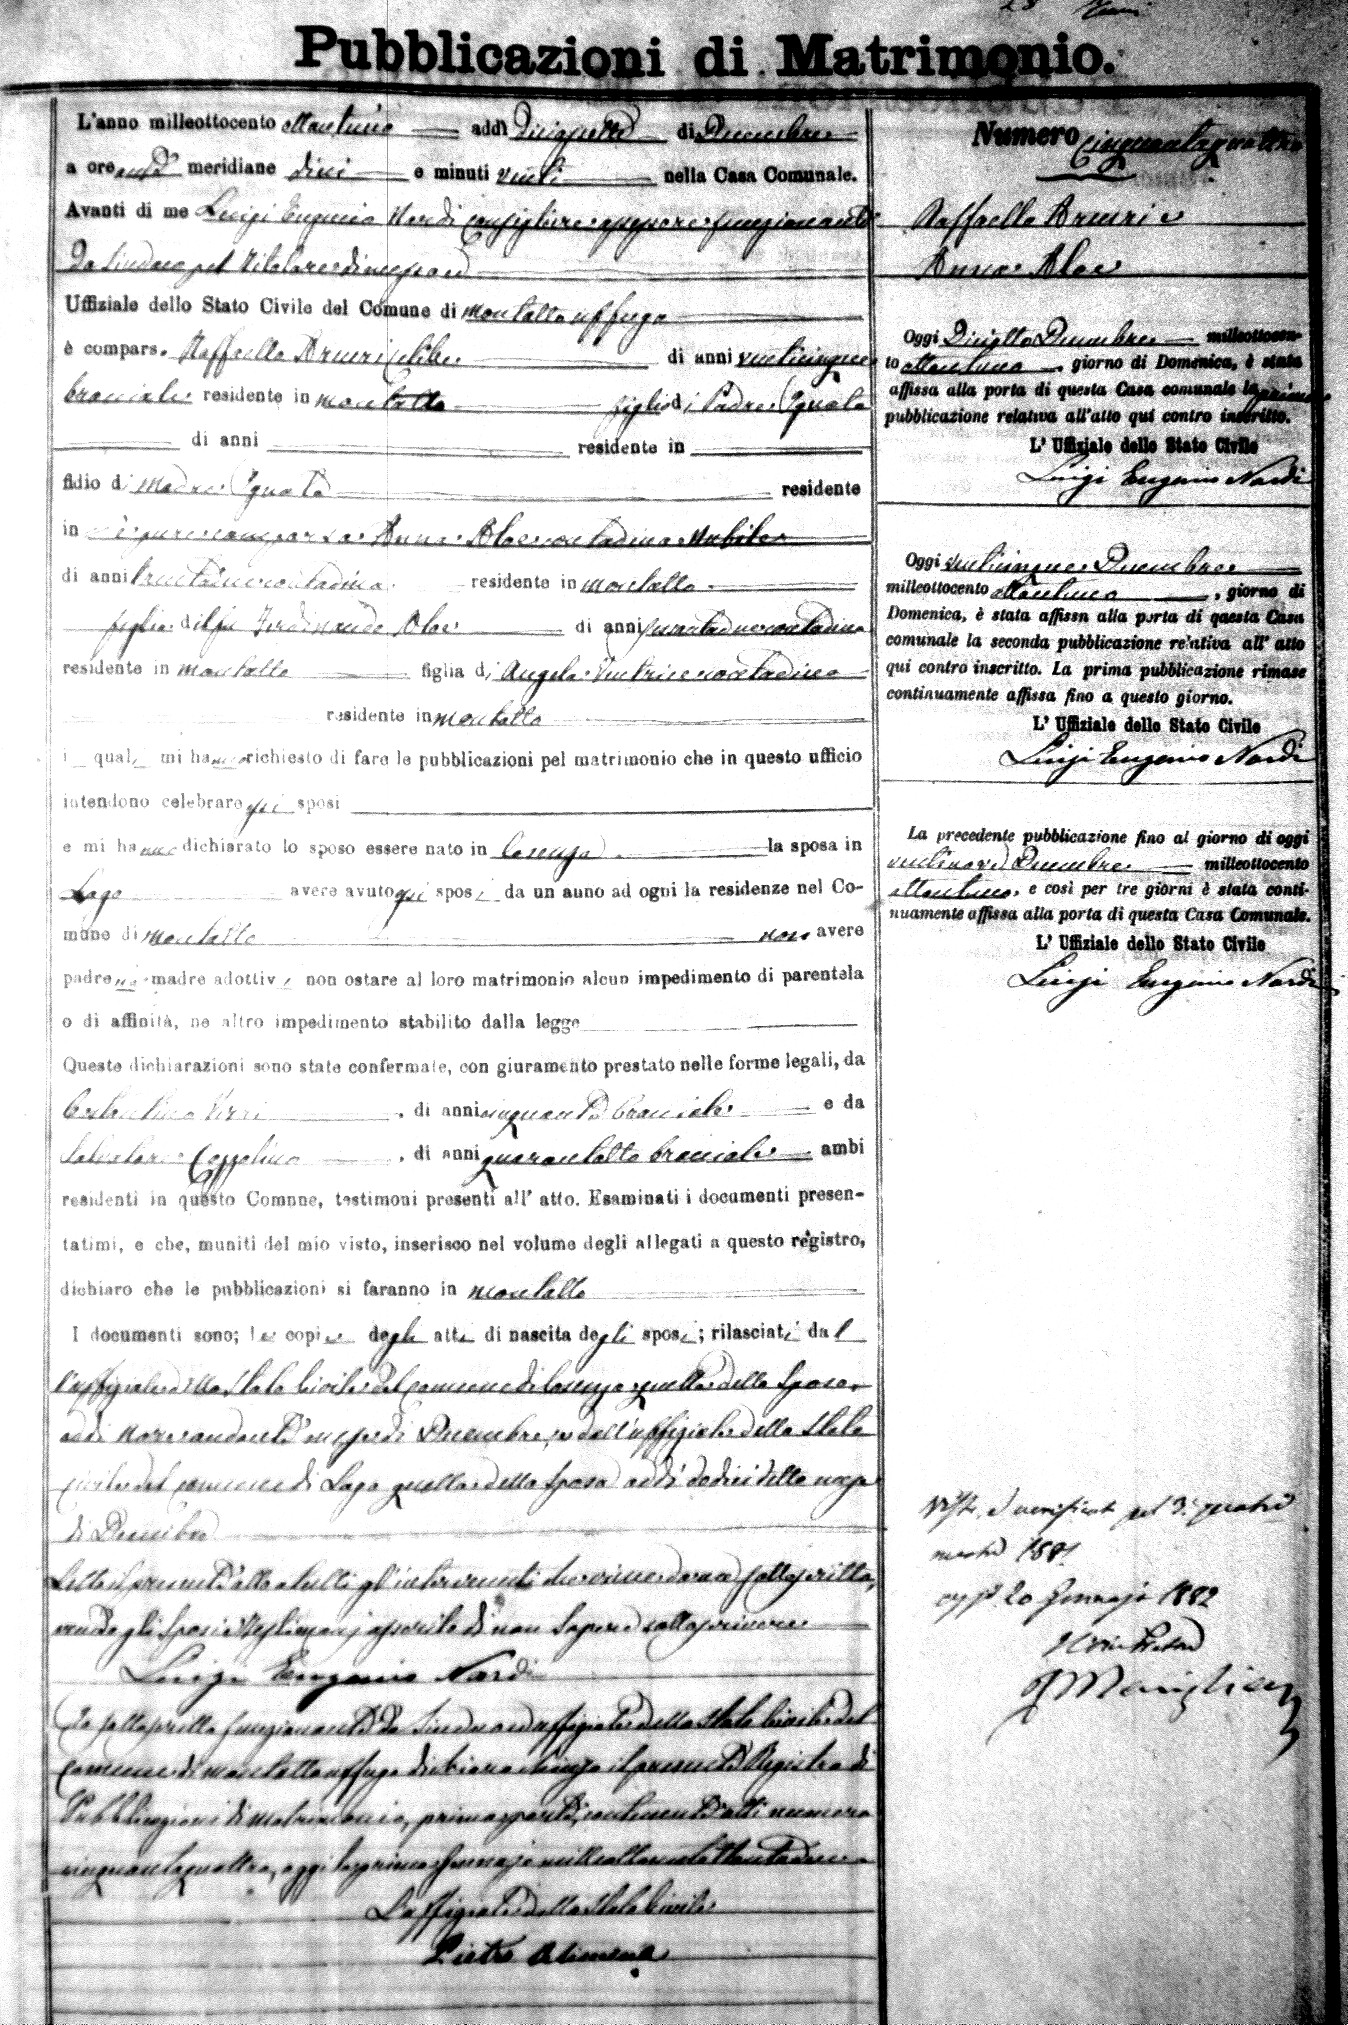 Pubblicazioni di Matrimonio.
L'anno milleottocento ottantuno addì Diciassette di Decembre
a ore anti meridiane dieci e minuti venti nella Casa Comunale.
Avanti di me Luigi Eugenio Nardi Consigliere assessore funzionante
da Sindaco pel titolare
Uffiziale dello Stato Civile del Comune di Montalto Uffugo
è compars. Raffaello Bruni celibe di anni venticinque
bracciale residente in Montalto figlio di Padre Ignoto
di anni residente in
figlio di Madre Ignota residente
in è pure comparsa Anna Aloe contadina Nubile
di anni trentadue contadina residente in Montalto
figlia di fu Ferdinando Aloe di anni contadino
residente in Montalto figlia di Angela contadina
residente in Montalto
i quali mi hanno richiesto di fare le pubblicazioni pel matrimonio che in questo ufficio
intendono celebrare essi sposi
e mi hanno dichiarato lo sposo essere nato in Cosenza la sposa in
Lago avere avuto essi sposi da un anno ad ogni la residenze nel Co-
mune di Montalto non avere
padre nè madre adottivi non ostare al loro matrimonio alcun impedimento di parentela
o di affinità, ne altro impedimento stabilito dalla legge
Queste dichiarazioni sono state confermate, con giuramento prestato nelle forme legali, da
di anni cinquanta bracciale e da
Salvatore Coppolino, di anni quarantotto bracciale ambi
residenti in questo Comnne, testimoni presenti all' atto. Esaminati i documenti presen-
tatimi, e che, muniti del mio visto, inserisco nel volume degli allegati a questo registro,
dichiaro che le pubblicazioni si faranno in Montalto
I documenti sono; le copie degli atti di nascita degli sposi; rilasciati dal
l'uffiziale dello Stato Civile del Comune di Cosenza quella dello Sposo
addì Nove andante mese di Decembre, e dall'uffiziale dello Stato
Civile del Comune di Lago quella della Sposa addì dodici dello mese
di Decembre
Letto il presente atto a tutti gl'intervenuti viene da me sottoscritto,
avendo gli Sposi e testimoni asserito di non sapere sottoscrivere
Luigi Eugenio Nardi
Io sottoscritto funzionante da Sindaco uffiziale dello Stato Civile del
Comune di Montalto Uffugo dichiaro chiuso il presente Registro di
Pubblicazioni di Matrimonio, prima parte, contenente atti numero
cinquantaquattro, oggi primo Gennajo milleottocentottantadue
L'uffiziale dello Stato Civile
Pietro Alimena
Numero Cinquantaquattro
Raffaello Bruni e
Anna Aloe
Oggi Diciotto Decembre milleottocen-
to ottantuno, giorno di Domenica, è stata
affissa alla porta di questa Casa comunale la prima
pubblicazione relativa all'atto qui contro inscritto.
L' Uffiziale dello Stato Civile
Luigi Eugenio Nardi
Oggi venticinque Decembre
milleottocento ottantuno, giorno di
Domenica, è stata affissn alla porta di questa Casa
comunale la seconda pubblicazione relativa all' atto
qui contro inscritto. La prima pubblicazione rimase
continuamente affissa fino a questo giorno.
L' Uffiziale dello Stato Civile
Luigi Eugenio Nardi
La precedente pubblicazione fino al giorno di oggi
ventinove Decembre milleottocento
ottantuno, e così per tre giorni è stata conti-
nuamente affissa alla porta di questa Casa Comunale.
L' Uffiziale dello Stato Civile
Luigi Eugenio Nardi
Visto e verificato pel 3° quadri
mestre 1881
oggi 20 Gennajo 1882